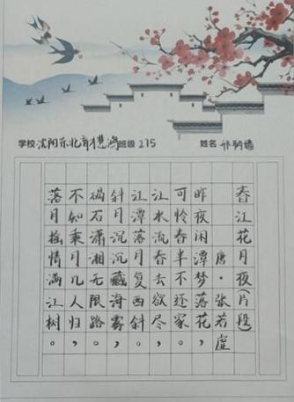 学校 沈阳东北育才悲鸿 班级 275 姓名
春江花月夜(片段)
唐·张若虚
昨夜闲潭梦落花,
可怜春半不还家。
江水流春去欲尽,
江潭落月复西斜。
斜月沉沉藏海雾,
碣石潇湘无限路。
不知乘月几人归,
落月摇情满江树。